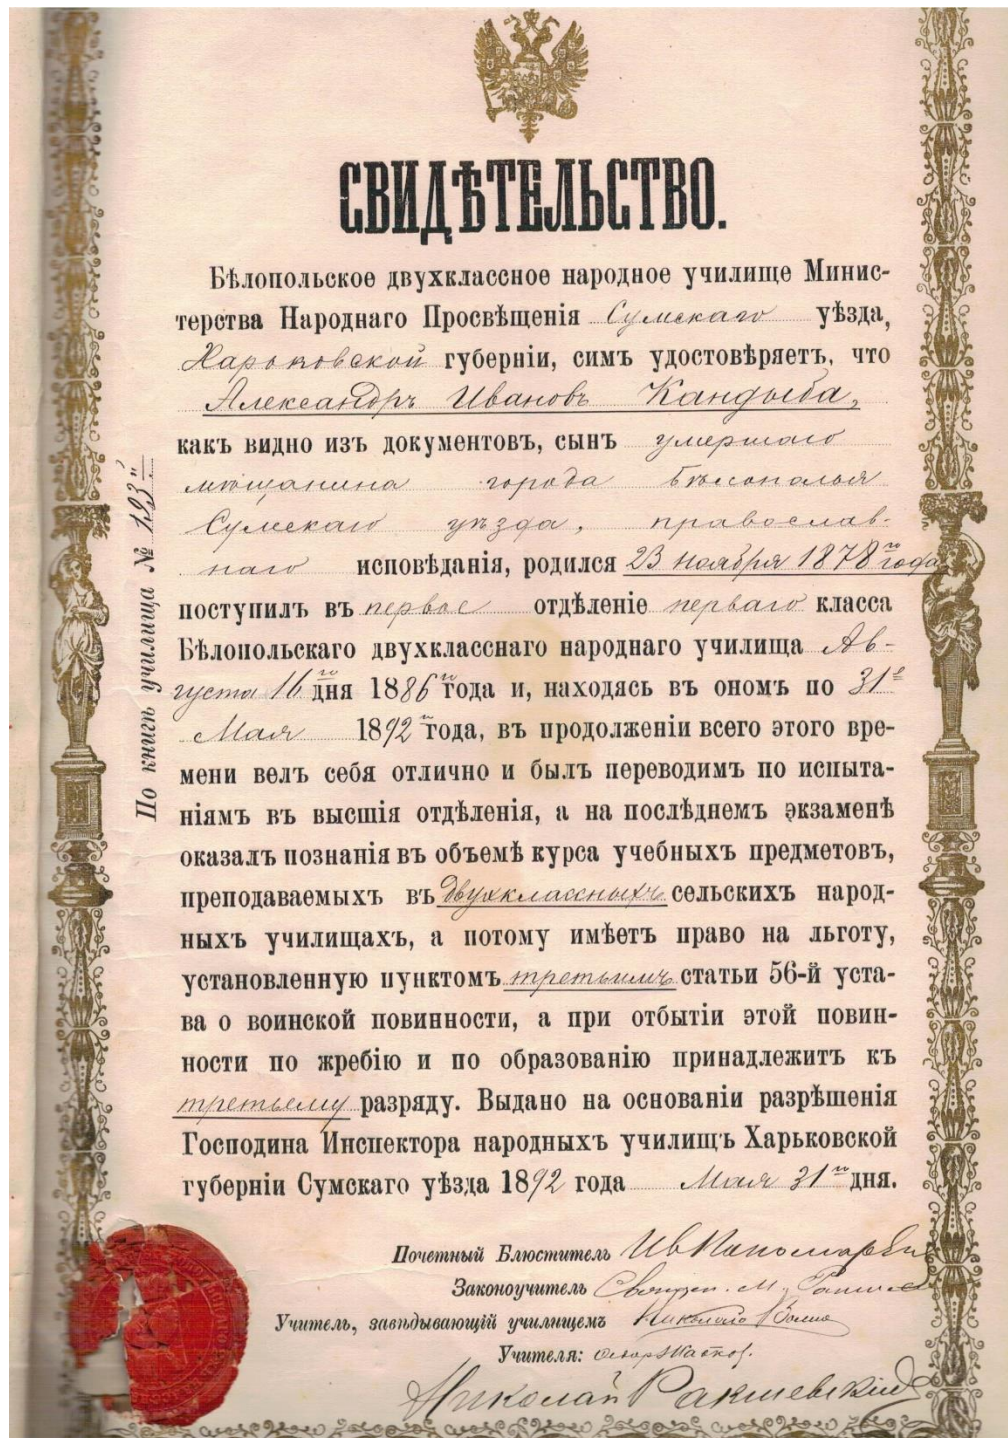 СВИДѢТЕЛЬСТВО.
Бѣлопольское двухклассное народное училище Минис-
терства Народнаго Просвѣщенія Сумскаго уѣзда,
Харьковской губерніи, симъ удостовѣряетъ, что
Александръ Ивановъ Кандыба,
какъ видно изъ документовъ, сынъ умершаго
мѣщанина города Бѣлополья
Сумскаго уѣзда, православ-
наго исповѣданія, родился 23 ноября 1878 го года
поступилъ въ первое отдѣленіе перваго класса
Бѣлопольскаго двухкласснаго народнаго училища Ав-
густа 16 го дня 1886 го года и, находясь въ ономъ по 31 е
Мая 1892 г года, въ продолженіи всего этого вре-
мени велъ себя отлично и былъ переводимъ по испыта-
ніямъ въ высшія отдѣленія, а на послѣднемъ экзаменѣ
оказалъ познанія въ объемѣ курса учебныхъ предметовъ,
преподаваемыхъ въ двухклассныхъ сельскихъ народ-
ныхъ училищахъ, а потому имѣетъ право на льготу,
установленную пунктомъ третьимъ статьи 56-й уста-
ва о воинской повинности, а при отбытіи этой повин-
ности по жребію и по образованію принадлежитъ къ
третьему разряду. Выдано на основаніи разрѣшенія
Господина Инспектора народныхъ училищъ Харьковской
губерніи Сумскаго уѣзда 1892 года Мая 31 го дня.
По книгѣ училища № 123
Почетный Блюститель Ив Пономарев
Законоучитель Свящ. М.
Учитель, завѣдывающій училищемъ Николай
Учителя:
Николай Ракшевскій